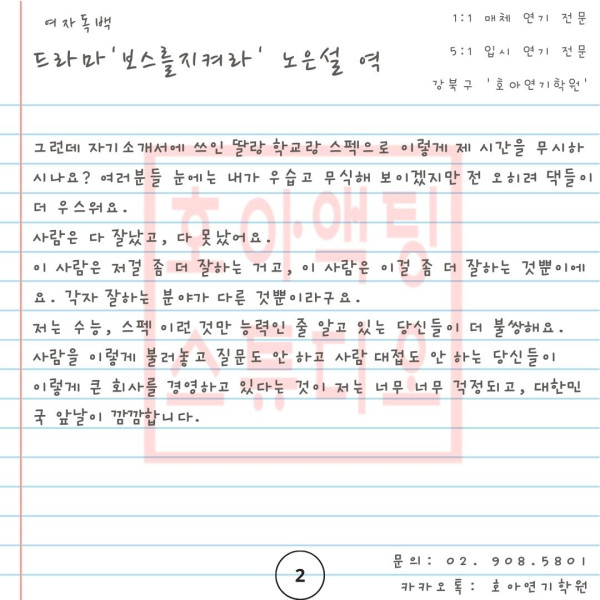 여자독백
1:1 매체 연기 전문
드라마'보스를지켜라' 노은설 역
5:1 입시 연기 전문
강북구 '호아연기학원'
그런데 자기소개서에 쓰인 딸랑 학교랑 스펙으로 이렇게 제 시간을 무시하
시나요? 여러분들 눈에는 내가 우습고 무식해 보이겠지만 전 오히려 댁들이
더 우스워요.
사람은 다 잘났고, 다 못났어요.
이 사람은 저걸 좀 더 잘하는 거고, 이 사람은 이걸 좀 더 잘하는 것뿐이에
요. 각자 잘하는 분야가 다른 것뿐이라구요.
저는 수능, 스펙 이런 것만 능력인 줄 알고 있는 당신들이 더 불쌍해요.
사람을 이렇게 불러놓고 질문도 안 하고 사람 대접도 안 하는 당신들이
이렇게 큰 회사를 경영하고 있다는 것이 저는 너무 너무 걱정되고, 대한민
국 앞날이 깜깜합니다.
호아액팅
스튜디오
2
문의: 02. 908.5801
카카오톡: 호아연기학원